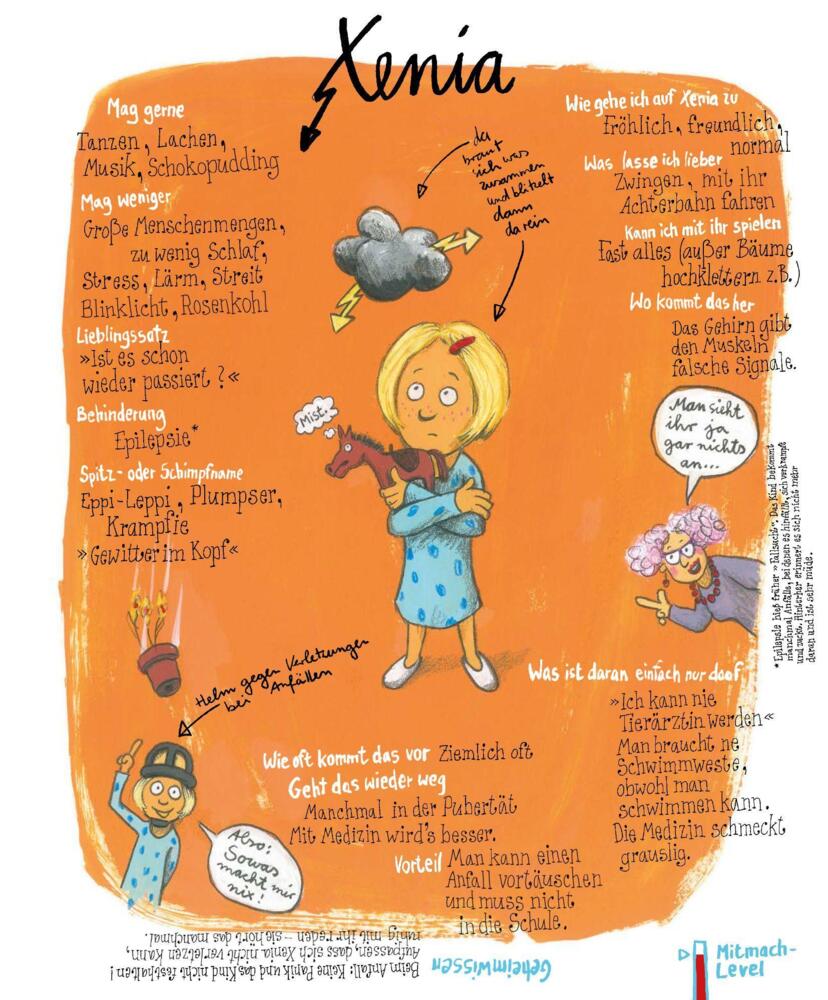 Xenia
Mag gerne
Tanzen, Lachen,
Musik, Schokopudding
Mag weniger
Große Menschenmengen,
zu wenig Schlaf,
Stress, Lärm, Streit
Blinklicht, Rosenkohl
Lieblingssatz
»Ist es schon
wieder passiert?«
Behinderung
Epilepsie*
Spitz- oder Schimpfname
Eppi-Leppi, Plumpser,
Krampfie
»Gewitter im Kopf«
da
braut
sich was
zusammen
und blitzelt
dann
da rein
Mist.
Wie gehe ich auf Xenia zu
Fröhlich, freundlich,
normal
Was lasse ich lieber
Zwingen, mit ihr
Achterbahn fahren
Kann ich mit ihr spielen
Fast alles (außer Bäume
hochklettern z.B.)
Wo kommt das her
Das Gehirn gibt
den Muskeln
falsche Signale.
Man sieht
ihr ja
gar nichts
an...
*Epilepsie hieß früher »Fallsucht«. Das Kind bekommt
manchmal Anfälle, bei denen es hinfällt, sich verkrampft
und zuckt. Hinterher erinnert es sich nicht mehr
daran und ist sehr müde.
Was ist daran einfach nur doof
»Ich kann nie
Tierärztin werden«
Man braucht ne
Schwimmweste,
obwohl man
schwimmen kann.
Die Medizin schmeckt
grauslig.
Helm gegen Verletzungen
bei Anfällen
Also:
Sowas
macht mir
nix!
Wie oft kommt das vor Ziemlich oft
Geht das wieder weg
Manchmal in der Pubertät
Mit Medizin wird's besser.
Vorteil Man kann einen
Anfall vortäuschen
und muss nicht
in die Schule.
Geheimwissen
Beim Anfall: Keine Panik und das Kind nicht festhalten!
Aufpassen, dass sich Xenia nicht verletzen kann,
ruhig mit ihr reden – sie hört das manchmal.
Mitmach-
Level